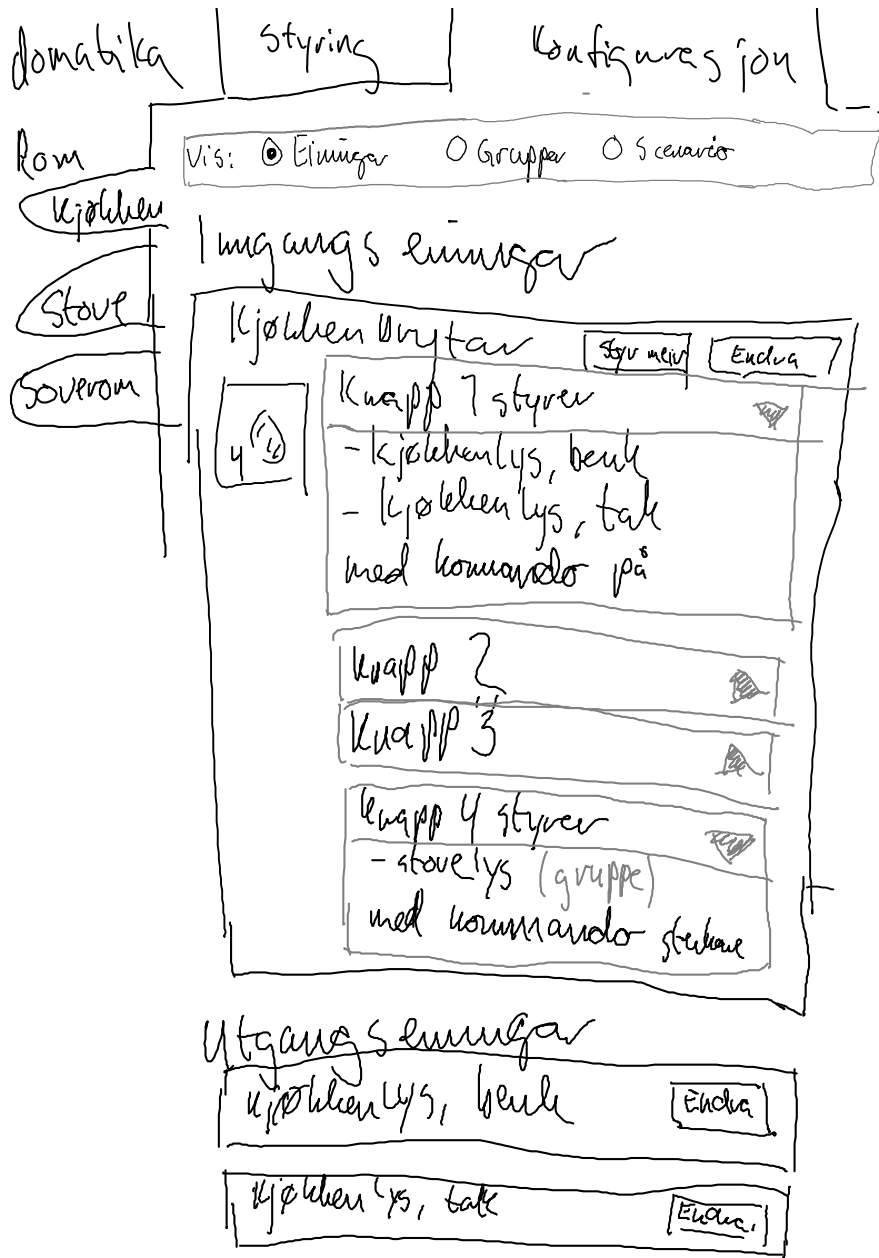 domatika
Styring
Konfigurasjon
Rom
Kjøkken
Stove
Soverom
Vis: Einingar Grupper Scenario
Inngangseiningar
Kjøkkenbrytar
Styr meir
Endra
4
Knapp 1 styrer
- kjøkkenlys, benk
- kjøkkenlys, tak
med kommando på
knapp 2
Knapp 3
knapp 4 styrer
- stovelys (gruppe)
med kommando sterkare
Utgangseiningar
kjøkkenlys, benk
Endra
kjøkkenlys, tak
Endra